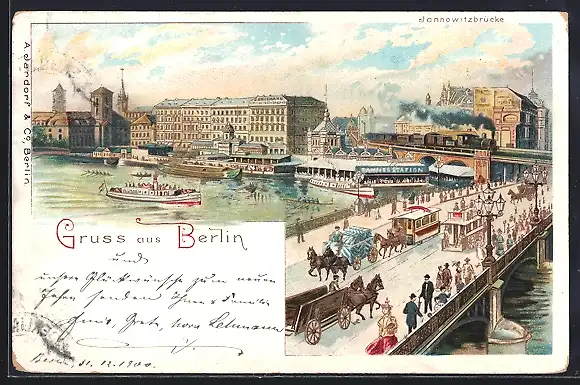 Jannowitzbrücke
A. Jandorf & Co, Berlin
DAMPFER STATION
Gruss aus Berlin
und
unsere Glückwünsche zum neuen
Jahre senden Ihnen & Familie
Grete, Nora Lehmann
Berlin, 31.12.1900.